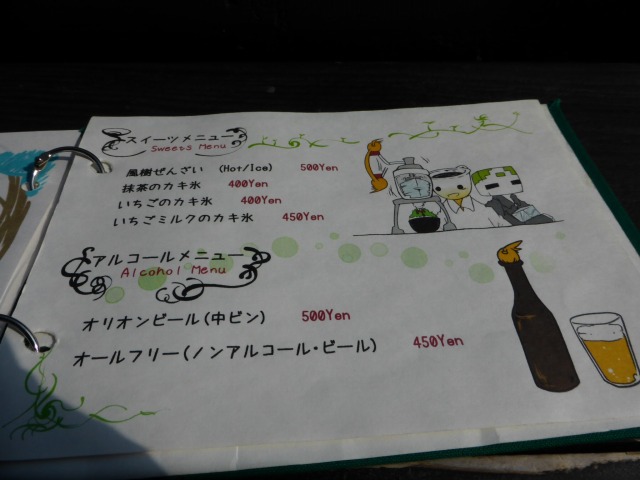 スイーツメニュー
Sweets Menu
風樹ぜんざい (Hot/Ice) 500Yen
抹茶のカキ氷 400Yen
いちごのカキ氷 400Yen
いちごミルクのカキ氷 450Yen
アルコールメニュー
Alcohol Menu
オリオンビール(中ビン) 500Yen
オールフリー(ノンアルコール・ビール) 450Yen